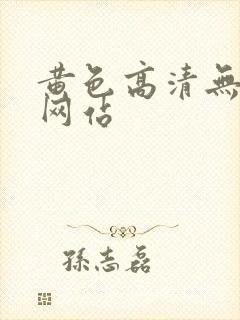 黄色高清無
网估
孫志磊